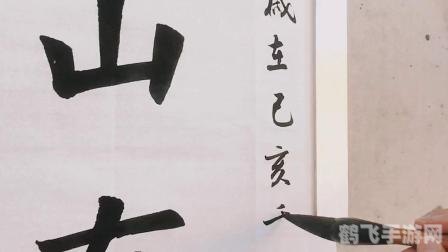 山
歲在己亥
鹤飞手游网